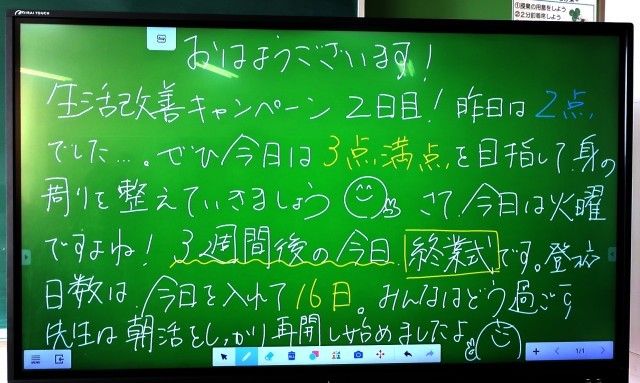 ①授業の用意をしよう
②2分前着席しよう
おはようございます！
生活改善キャンペーン 2日目！昨日は2点
でした…。ぜひ今日は3点満点を目指して、身の
周りを整えていきましょう さて、今日は火曜
ですよね！3週間後の今日、終業式です。登校
日数は、今日を入れて16日。みんなはどう過ごす
先生は朝活をしっかり再開し始めましたよ
1/1